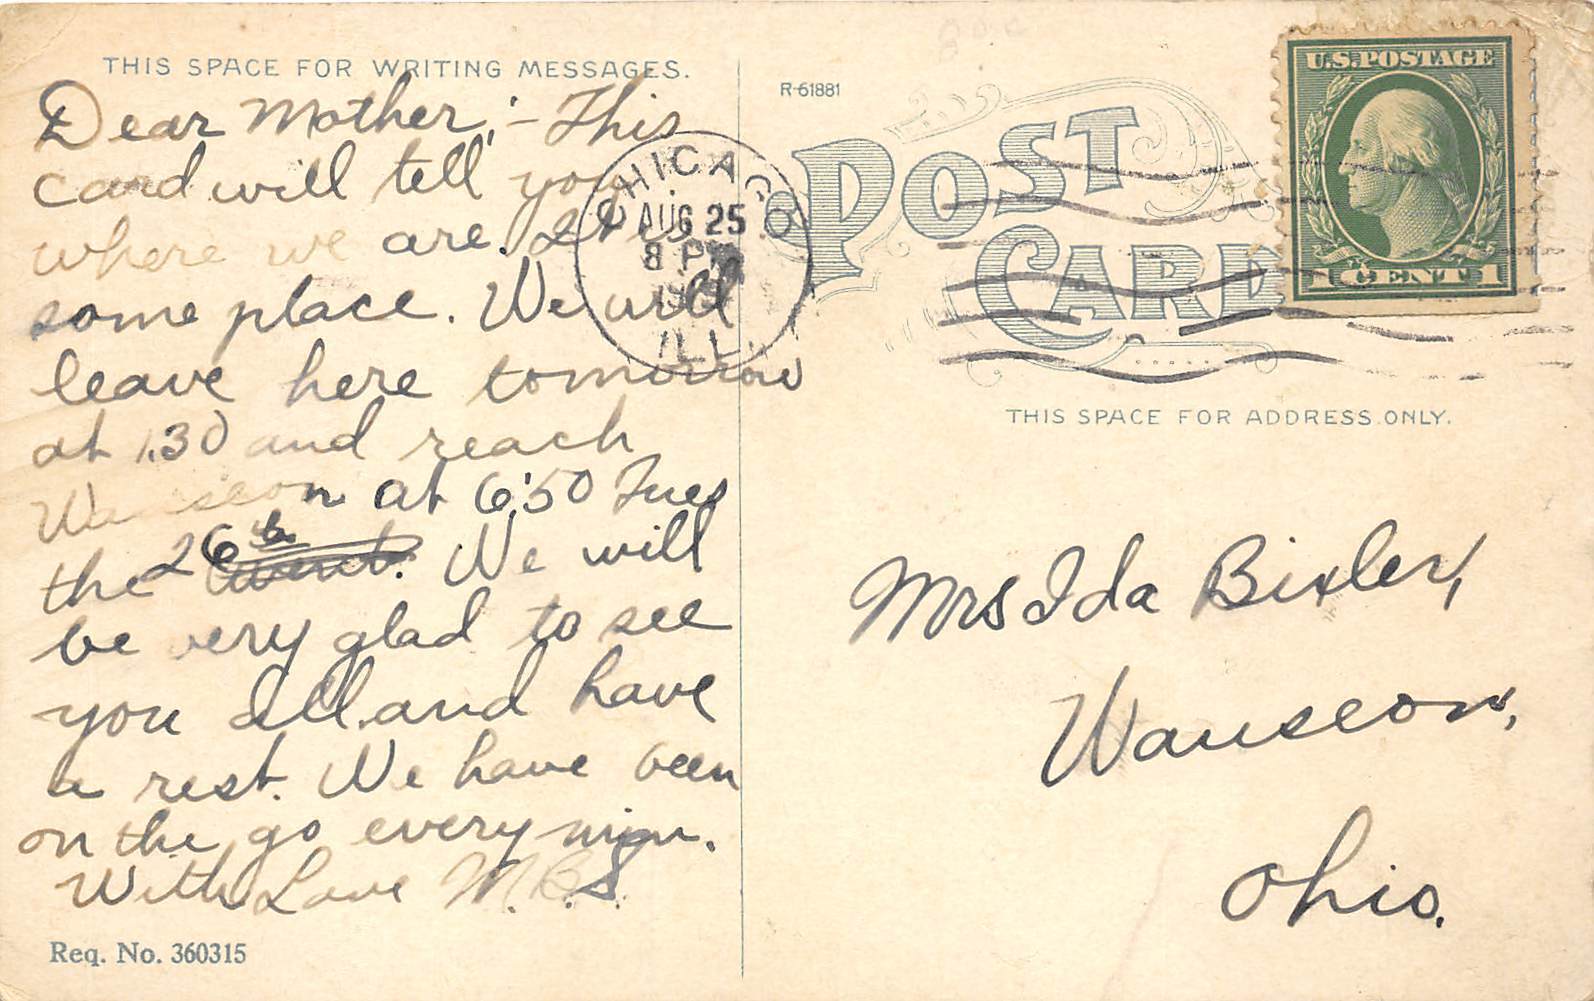 THIS SPACE FOR WRITING MESSAGES.
Dear Mother;- This
card will tell you
where we are. It is
some place. We will
leave here tomorrow
at 1.30 and reach
Wauseon at 6:50 Tues
the 26th We will
be very glad to see
you all and have
a rest. We have been
on the go every min.
With Love M.B.S.
Req. No. 360315
R-61881
POST
CARD
CHICAGO
AUG 25
8 PM
ILL.
U.S. POSTAGE
1 CENT 1
THIS SPACE FOR ADDRESS ONLY.
Mrs Ida Bixler,
Wauseon,
Ohio.